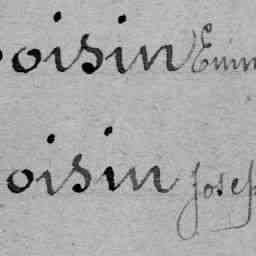 oisin Emm
oisin Josep